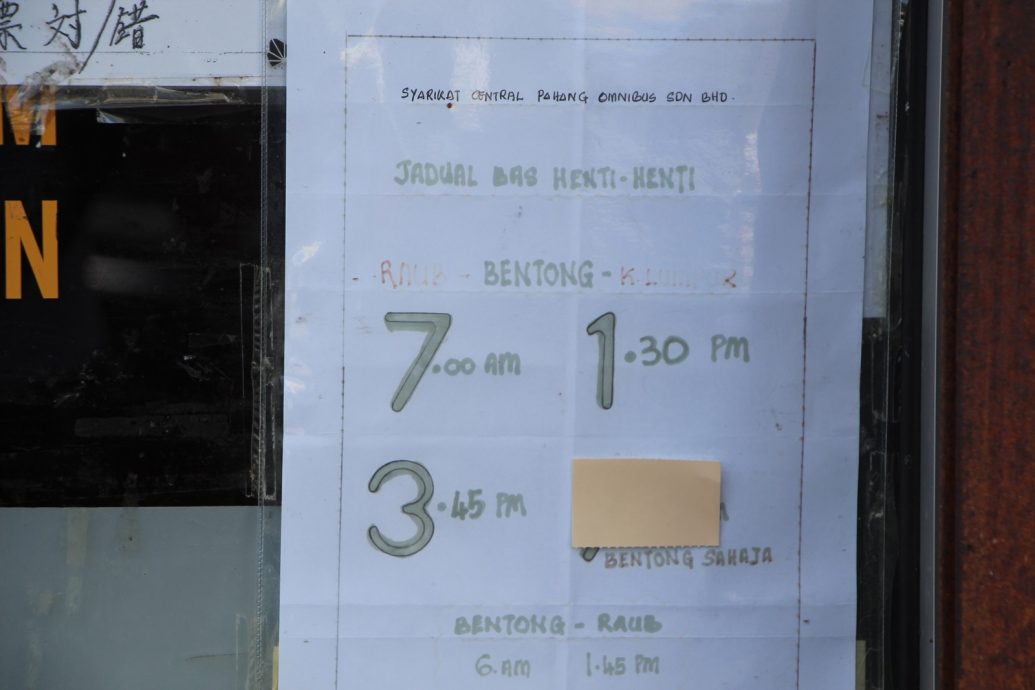 票 対/錯
M
N
SYARIKAT CENTRAL PAHANG OMNIBUS SDN BHD.
JADUAL BAS HENTI-HENTI
- RAUB - BENTONG - K. LUMPUR
7.00 AM 1.30 PM
3.45 PM
BENTONG SAHAJA
BENTONG - RAUB
6.AM 1.45 PM